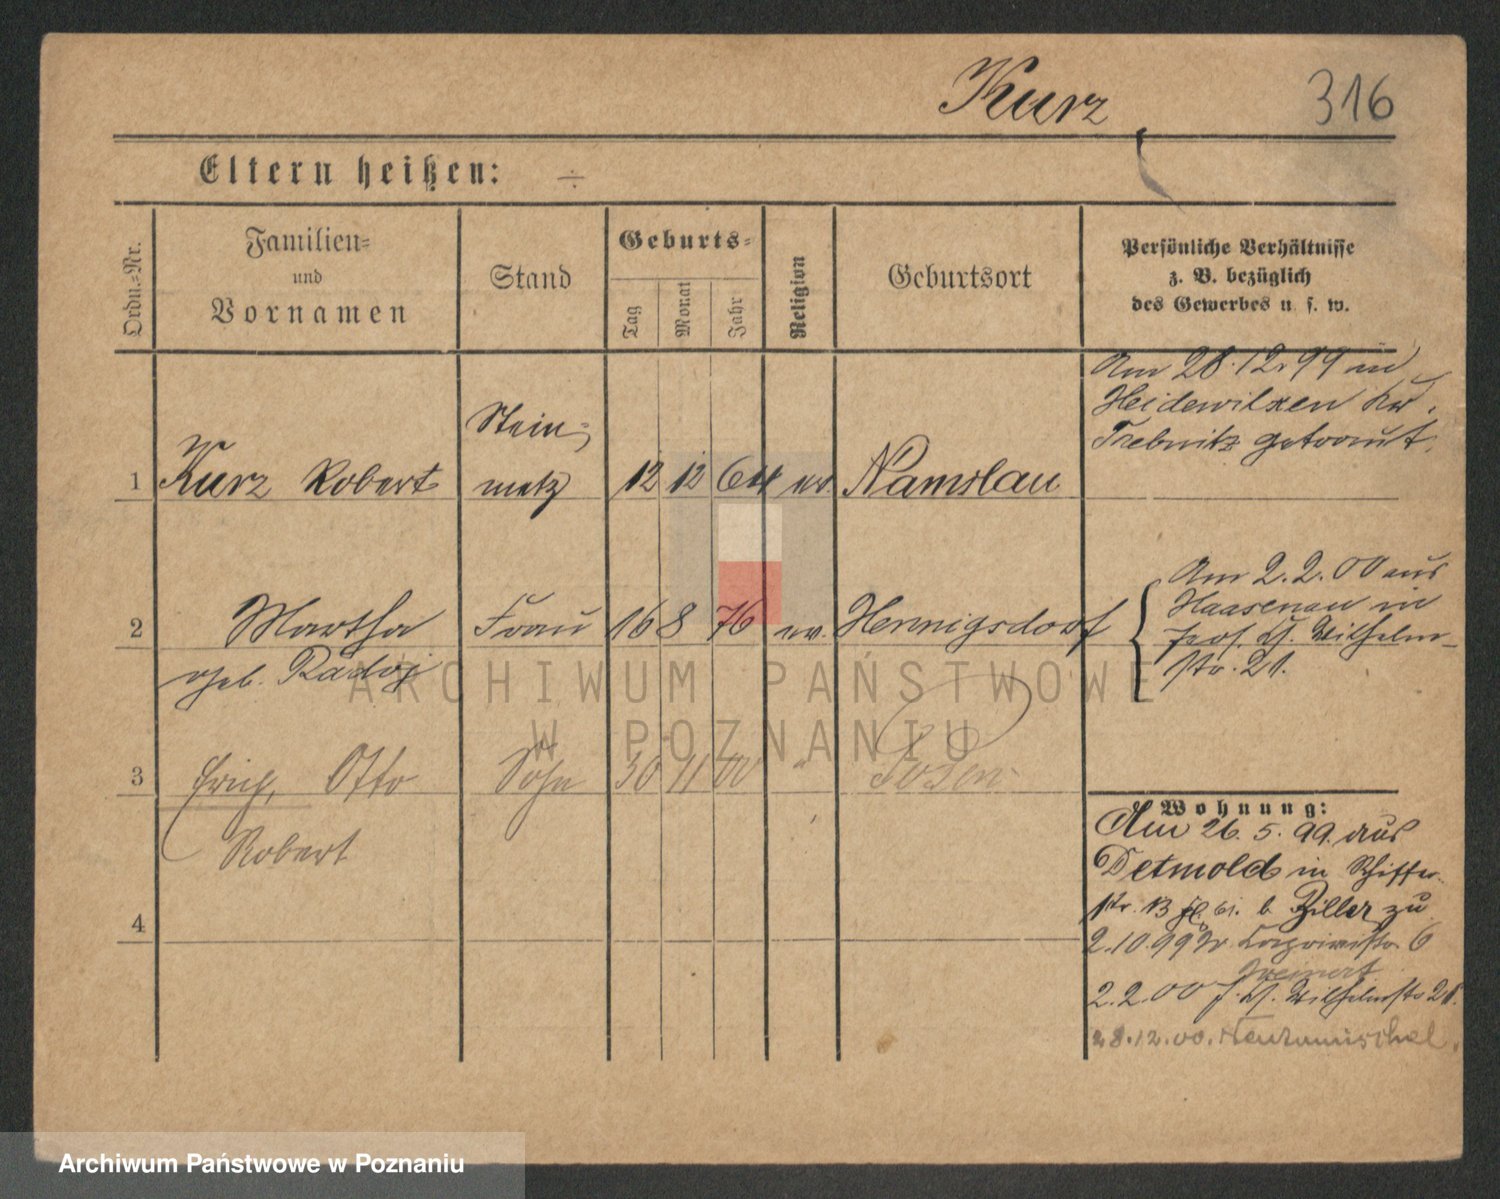 Kurz 316
Eltern heißen: ÷
Ordn.=Nr.
Familien=
und
Vornamen
Stand
Geburts=
Tag
Monat
Jahr
Religion
Geburtsort
Persönliche Verhältnisse
z. B. bezüglich
des Gewerbes u. s. w.
Am 28.12.99 in
Heidewilxen Kr.
Trebnitz getraut.
Stein=
1 Kurz Robert metz 12 12 64 ev. Namslau
Am 2.2.00 aus
Haasenau in
2 Martha Frau 16 8 76 ev. Hennigsdorf
Wilhelm-
geb. str. 21.
ARCHIWUM PAŃSTWOWE
W POZNANIU
3 Erich, Otto Sohn 30 11 00 " Posen
Robert
Wohnung:
Am 26.5.99. aus
Detmold in Schiffer-
str. 13 b. Ziller zu
4
2.10.99 6
2.2.00 Wilhelmstr 21.
28.12.00. Neutomischel.
Archiwum Państwowe w Poznaniu